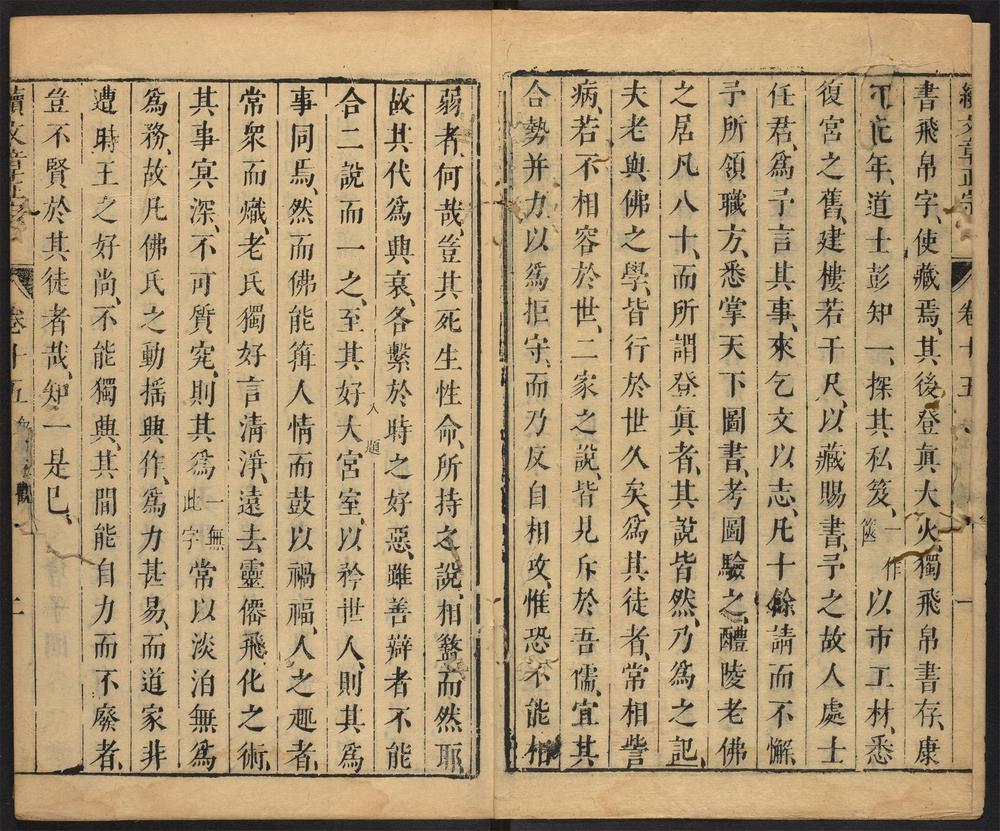 續文章正宗 卷十五 一
書飛帛字、使藏焉、其後登眞大火、獨飛帛書存、康
定元年、道士彭知一、探其私笈、一作篋以市工材、悉
復宮之舊、建樓若干尺、以藏賜書、予之故人處士
任君、爲予言其事、來乞文以志、凡十餘請而不懈、
予所領職方、悉掌天下圖書、考圖驗之、醴陵老佛
之居凡八十、而所謂登眞者、其說皆然、乃爲之記、
夫老與佛之學、皆行於世久矣、爲其徒者、常相訾
病、若不相容於世、二家之說、皆見斥於吾儒、宜其
合勢并力以爲拒守、而乃反自相攻、惟恐不能相
弱者、何哉、豈其死生性命、所持之說、相盭而然耶、
故其代爲興衰、各繫於時之好惡、雖善辯者不能
入題
合二說而一之、至其好大宮室、以矜世人、則其爲
事同焉、然而佛能箝人情而鼓以禍福、人之趣者、
常衆而熾、老氏獨好言清淨、遠去靈僊飛化之術、
其事冥深、不可質究、則其爲一無此字常以淡泊無爲
爲務、故凡佛氏之動搖興作、爲力甚易、而道家非
遭時王之好尚、不能獨興、其間能自力而不廢者、
豈不賢於其徒者哉、知一是已、
續文章正宗 卷十五 二